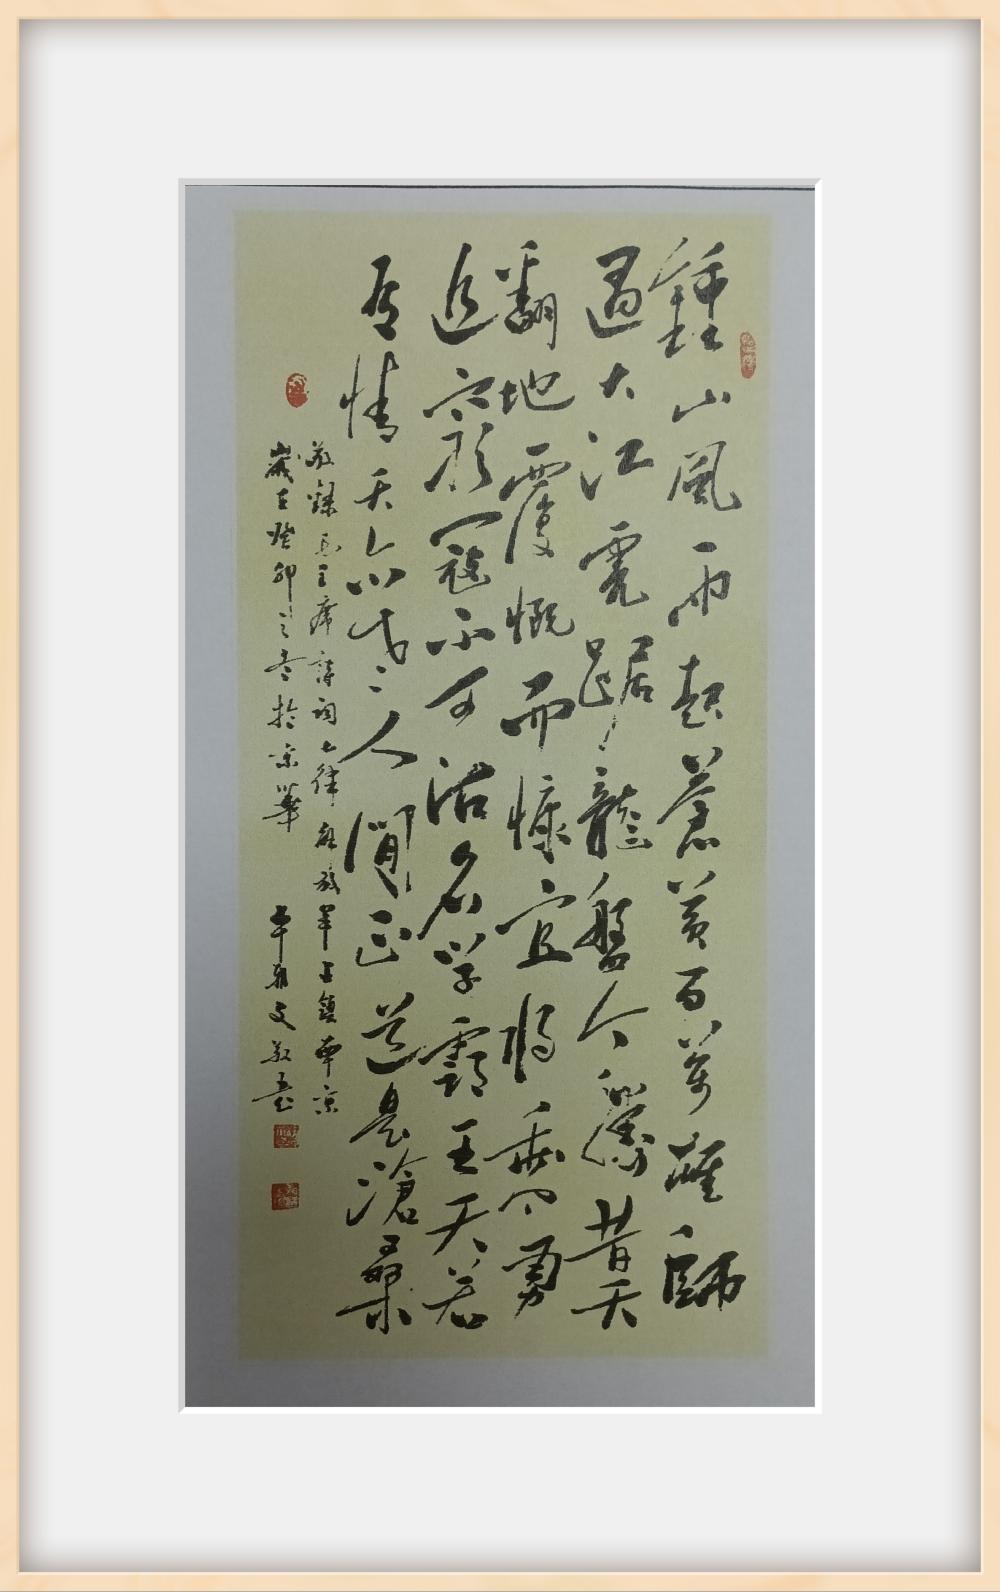 鍾山風雨起蒼黃百萬雄師
過大江虎踞龍盤今勝昔天
翻地覆慨而慷宜將乘勇
追窮寇不可沽名學霸王天若
有情天亦老人間正道是滄桑
敬錄毛主席詩詞七律解放軍占領南京
歲在癸卯之冬於京華
文敬書